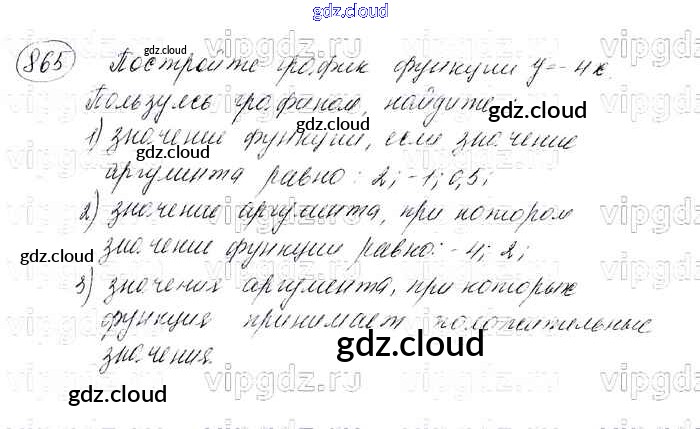 gdz.cloud
865 Постройте график функции y=-4x.
Пользуясь графиком, найдите
1) значение функции, если значение
аргумента равно: 2; -1; 0,5;
2) значение аргумента, при котором
значение функции равно: -4; 2;
3) значения аргумента, при которых
функция принимает положительные
значения.
gdz.cloud
gdz.cloud
gdz.cloud
gdz.cloud
gdz.cloud
gdz.cloud
gdz.cloud
gdz.cloud
gdz.cloud
vipgdz.ru